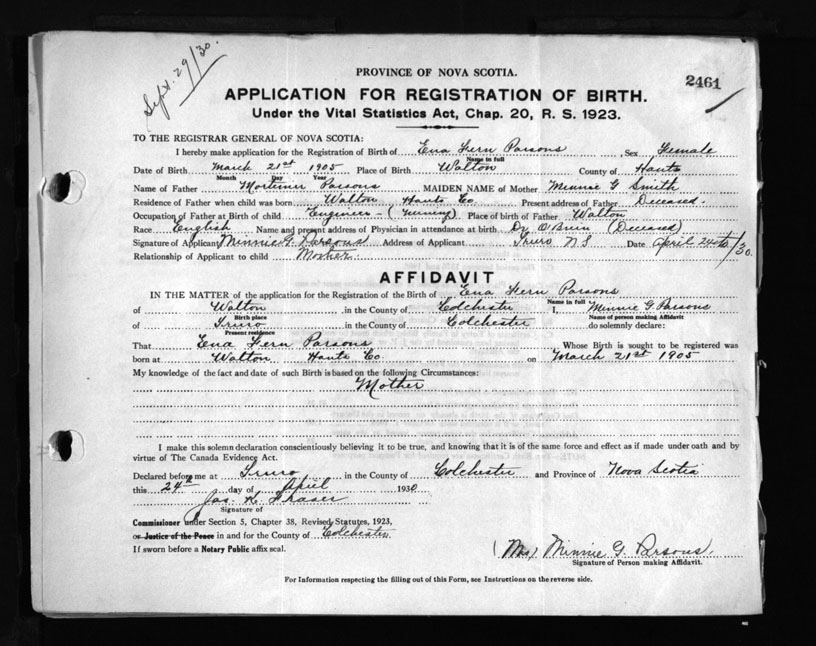 Sept. 29/30.
2461
PROVINCE OF NOVA SCOTIA.
APPLICATION FOR REGISTRATION OF BIRTH.
Under the Vital Statistics Act, Chap. 20, R. S. 1923.
TO THE REGISTRAR GENERAL OF NOVA SCOTIA:
I hereby make application for the Registration of Birth of Ena Fern Parsons , Sex Female
Name in full
Date of Birth March 21st 1905 Place of Birth Walton County of Hants
Month Day Year
Name of Father Mortimer Parsons MAIDEN NAME of Mother Minnie G Smith
Residence of Father when child was born Walton Hants Co Present address of Father Deceased.
Occupation of Father at Birth of child Engineer - ( ) Place of birth of Father Walton
Race English Name and present address of Physician in attendance at birth Dr O'Brien (Deceased)
Signature of Applicant Minnie G. Parsons Address of Applicant Truro N S Date April 24th/30.
Relationship of Applicant to child Mother.
AFFIDAVIT
IN THE MATTER of the application for the Registration of the Birth of Ena Fern Parsons
Name in full
of Walton in the County of Colchester I, Minnie G Parsons
Birth place Name of person making Affidavit
of Truro in the County of Colchester do solemnly declare:
Present residence
That Ena Fern Parsons Whose Birth is sought to be registered was
born at Walton Hants Co on March 21st 1905
My knowledge of the fact and date of such Birth is based on the following Circumstances:
Mother
I make this solemn declaration conscientiously believing it to be true, and knowing that it is of the same force and effect as if made under oath and by
virtue of The Canada Evidency Act.
Declared before me at Truro in the County of Colchester and Province of Nova Scotia
this 24th day of April 1930
Jas. R. Fraser
Signature of
Commissioner under Section 5, Chapter 38, Revised Statutes, 1923,
or Justice of the Peace in and for the County of Colchester
If sworn before a Notary Public affix seal.
(Mrs) Minnie G. Parsons.
Signature of Person making Affidavit.
For Information respecting the filling out of this Form, see Instructions on the reverse side.